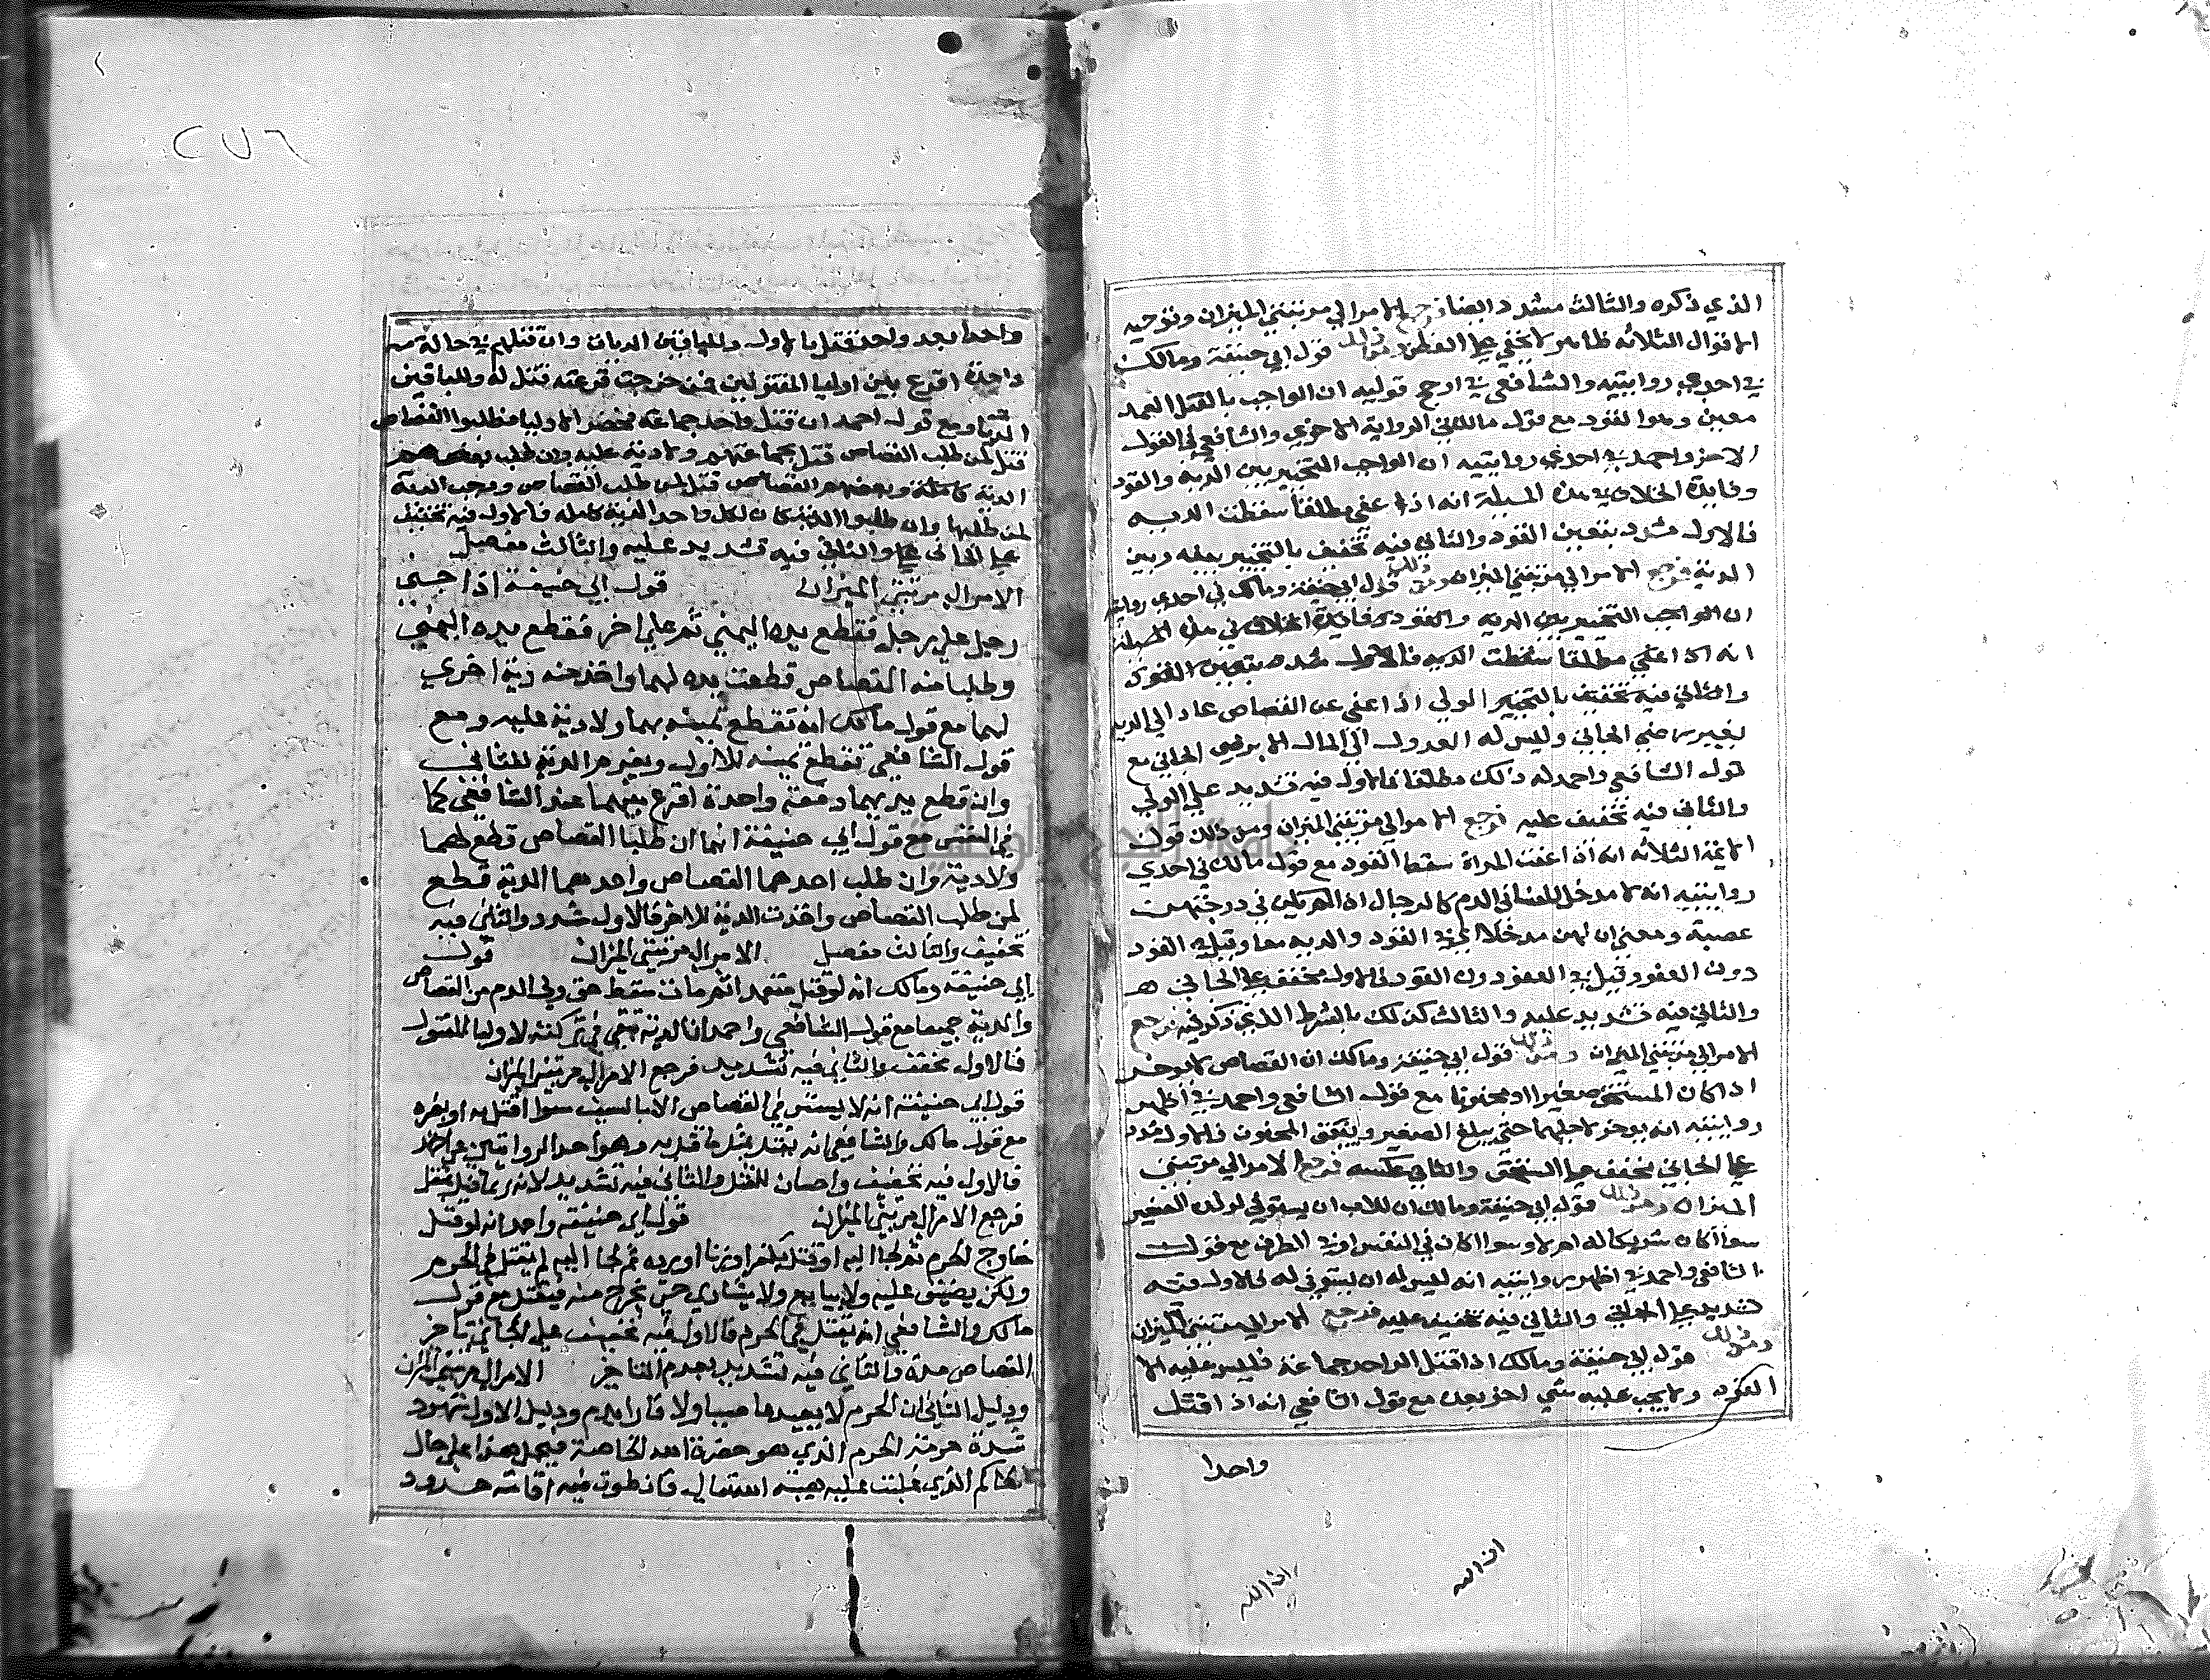 الذي ذكره والثالث مشدد ايضا فرجع الامر الي مرتبتي الميزان وتوجيه
الاقوال الثلاثه ظاهر لا يخفي علي الفطن ومن ذلك قول ابي حنيفة ومالك
في احدي روايتيه والشافعي في ارجح قوليه ان الواجب بالقتل العمد
معين وهو القود مع قول مالك في الرواية الاخري والشافعي في القول
الاخر واحمد في احدي روايتيه ان الواجب التخيير بين الديه والقود
وفايدة الخلاف في هذه المسيلة انه اذا عفي مطلقا سقطت الديه
فالاول مشدد بتعين القود والثاني فيه تخفيف بالتخيير بينه وبين
الدية فرجع الامر الي مرتبتي الميزان ومن ذلك قول ابي حنيفة ومالك في احدي روايتيه
ان الواجب التخيير بين الديه والقود وفايدة الخلاف في هذه المسيلة
انه اذا عفي مطلقا سقطت الديه فالاول مشدد بتعين القود
والثاني فيه تخفيف بالتخيير الولي اذا عفي عن القصاص عاد الي الديه
بغير رضي الجاني وليس له العدول الي المال الا برضي الجاني مع
قول الشافعي واحمد له ذلك مطلقا فالاول فيه تشديد علي الولي
والثاني فيه تخفيف عليه فرجع الامر الي مرتبتي الميزان ومن ذلك قول
الايمة الثلاثه انه اذا عفت المراة سقط القود مع قول مالك في احدي
روايتيه انه لا مدخل للنسا في الدم كالرجال اذا لم يكن في درجتهن
عصبة ومعني ان لهن مدخلا اي في القود والديه معا وقيل في القود
دون العفو وقيل في العفو دون القود فالاول مخفف علي الجاني
والثاني فيه تشديد عليه والثالث كذلك بالشرط الذي ذكر فيه فرجع
الامر الي مرتبتي الميزان ومن ذلك قول ابي حنيفة ومالك ان القصاص لا يوخر
اذا كان المستحق صغيرا او مجنونا مع قول الشافعي واحمد في اظهر
روايتيه انه يوخر لاجلهما حتي يبلغ الصغير ويفيق المجنون فالاول مشدد
علي الجاني مخفف علي المستحق والثاني عكسه فرجع الامر الي مرتبتي
الميزان ومن ذلك قول ابي حنيفة ومالك ان للاب ان يستوفي لولده الصغير
سوا كان شريكا له ام لا وسوا كان في النفس او في الطرف مع قول
الشافعي واحمد في اظهر روايتيه انه ليس له ان يستوفي له فالاول فيه
تشديد علي الجاني والثاني فيه تخفيف عليه فرجع الامر الي مرتبتي الميزان
ومن ذلك قول ابي حنيفة ومالك اذا قتل الواحد جماعة فليس عليه الا
القود ولا يجب عليه شي اخر بعده مع قول الشافعي انه اذا قتل
واحدا
ان الله
ان الله
٢٧٦
واحدا بعد واحد فقتل بالاول وللباقين الديات وان قتلهم في حالة
واحدة اقرع بين اوليا المقتولين فمن خرجت قرعته قتل له وللباقين
الديات ومع قول احمد ان قتل واحد جماعة فحضر الاوليا فطلبوا القصاص
قتل لمن طلب القصاص قتل بجماعتهم ولا دية عليه وان طلب بعضهم
الدية كاملة وبعضهم القصاص قتل لمن طلب القصاص ووجب الدية
لمن طلبها وان طلبوا الدية كان لكل واحد الدية كامله فالاول فيه تخفيف
علي الجاني والثاني فيه تشديد عليه والثالث مفصل
الامر الي مرتبتي الميزان قول ابي حنيفة اذا جني
رجل علي رجل فقطع يده اليمني ثم علي اخر فقطع يده اليمني
وطلبا منه القصاص قطعت يده لهما واخذ منه دية اخري
لهما مع قول مالك انه تقطع يمينه بهما ولا دية عليه ومع
قول الشافعي تقطع يمينه للاول ويغرم الدية للثاني
وان قطع يديهما دفعة واحدة اقرع بينهما عند الشافعي كما
في النفس مع قول ابي حنيفة انما ان طلبا القصاص قطع لهما
ولا دية وان طلب احدهما القصاص واحدهما الدية قطع
لمن طلب القصاص واخذت الدية للاخر فالاول مشدد والثاني فيه
تخفيف والثالث مفصل الامر الي مرتبتي الميزان قول
ابي حنيفة ومالك انه لو قتل متعمدا ثم مات سقط حق ولي الدم من القصاص
والدية جميعا مع قول الشافعي واحمد ان الدية تبقي في تركته لاوليا المقتول
فالاول مخفف والثاني فيه تشديد فرجع الامر الي مرتبتي الميزان
قول ابي حنيفة انه لا يستوفي القصاص الا بالسيف سوا قتل به او بغيره
مع قول مالك والشافعي انه يقتل بمثل ما قتل به وهو احد الروايتين عن احمد
فالاول فيه تخفيف واحسان للقتل والثاني فيه تشديد لانه ربما
فرجع الامر الي مرتبتي الميزان قول ابي حنيفة واحمد انه لو قتل
خارج الحرم ثم لجا اليه او قتل بكفر او زنا او ردة ثم لجا اليه لم يقتل في الحرم
ولكن يضيق عليه ولا يبايع ولا يشاري حتي يخرج منه فيقتل مع قول
مالك والشافعي انه يقتل في الحرم فالاول فيه تخفيف علي الجاني بتاخر
القصاص مدة والثاني فيه تشديد بعدم التاخير الامر الي مرتبتي الميزان
ودليل الثاني ان الحرم لا يعيذ عاصيا ولا فارا بدم ودليل الاول شهود
شدة حرمة الحرم الذي هو حضرة الله الخاصة فيحمل هذا علي حال
الحاكم الذي غلبت عليه هيبة الله تعالي فانطوت فيه اقامة حدود